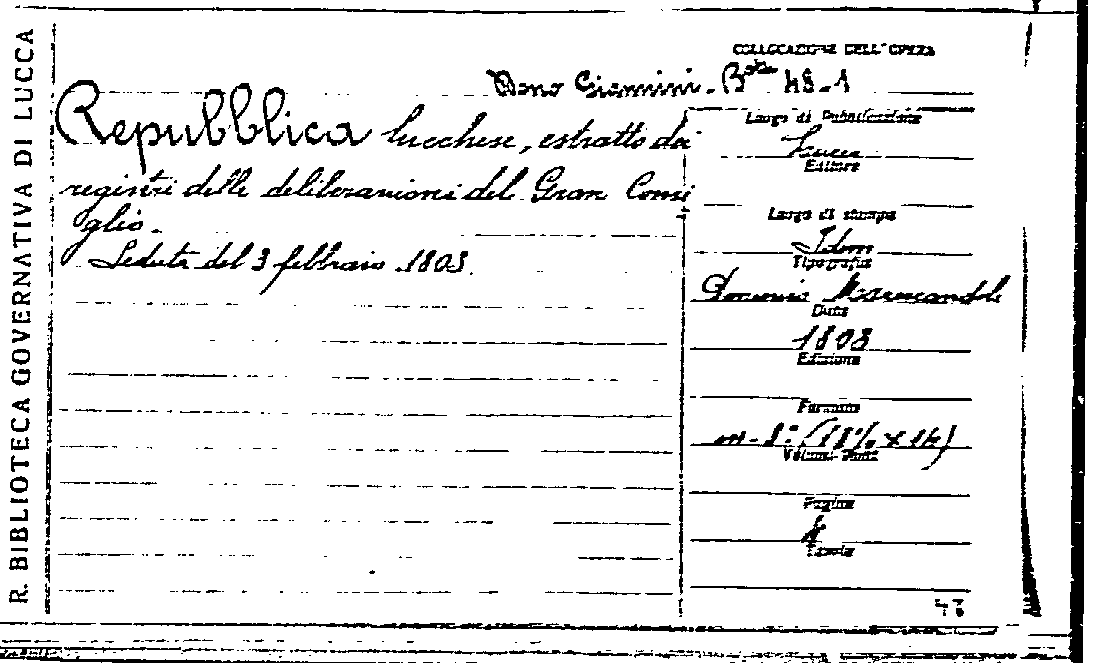 R. BIBLIOTECA GOVERNATIVA DI LUCCA
COLLOCAZIONE DELL'OPERA
Dono Giannini - B.ta 48-1
Repubblica lucchese, estratto dai
registri delle deliberazioni del Gran Consi
glio.
Seduta del 3 febbraio 1803.
Luogo di Pubblicazione
Lucca
Editore
Luogo di stampa
Idem
Tipografia
Domenico Marescandoli
Data
1803
Edizione
Formato
in-8° (
Volumi-Parti
Pagine
Tavole